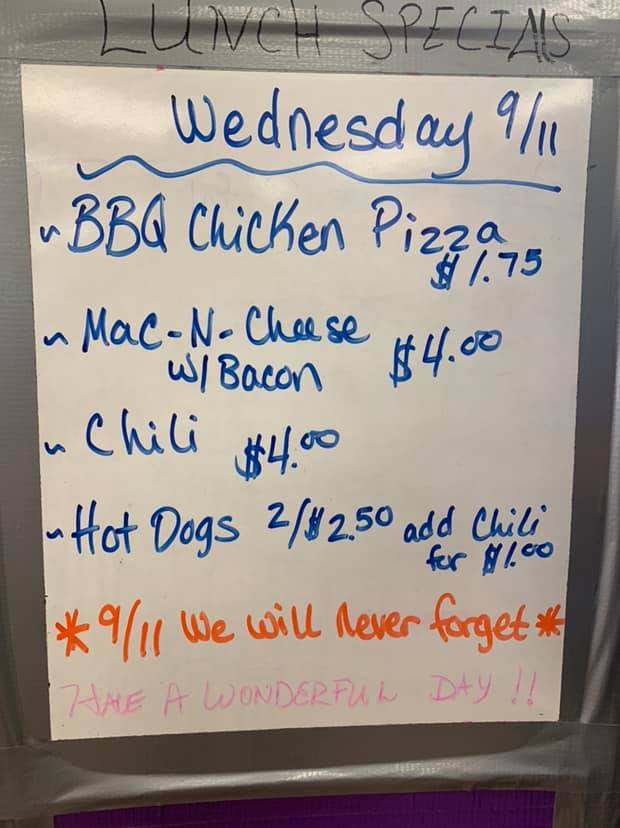 LUNCH SPECIALS
Wednesday 9/11
~ BBQ Chicken Pizza
$1.75
~ Mac-N-Cheese
w/ Bacon $4.00
~ Chili $4.00
~ Hot Dogs 2/$2.50 add Chili
for $1.00
* 9/11 We will Never forget *
HAVE A WONDERFUL DAY !!